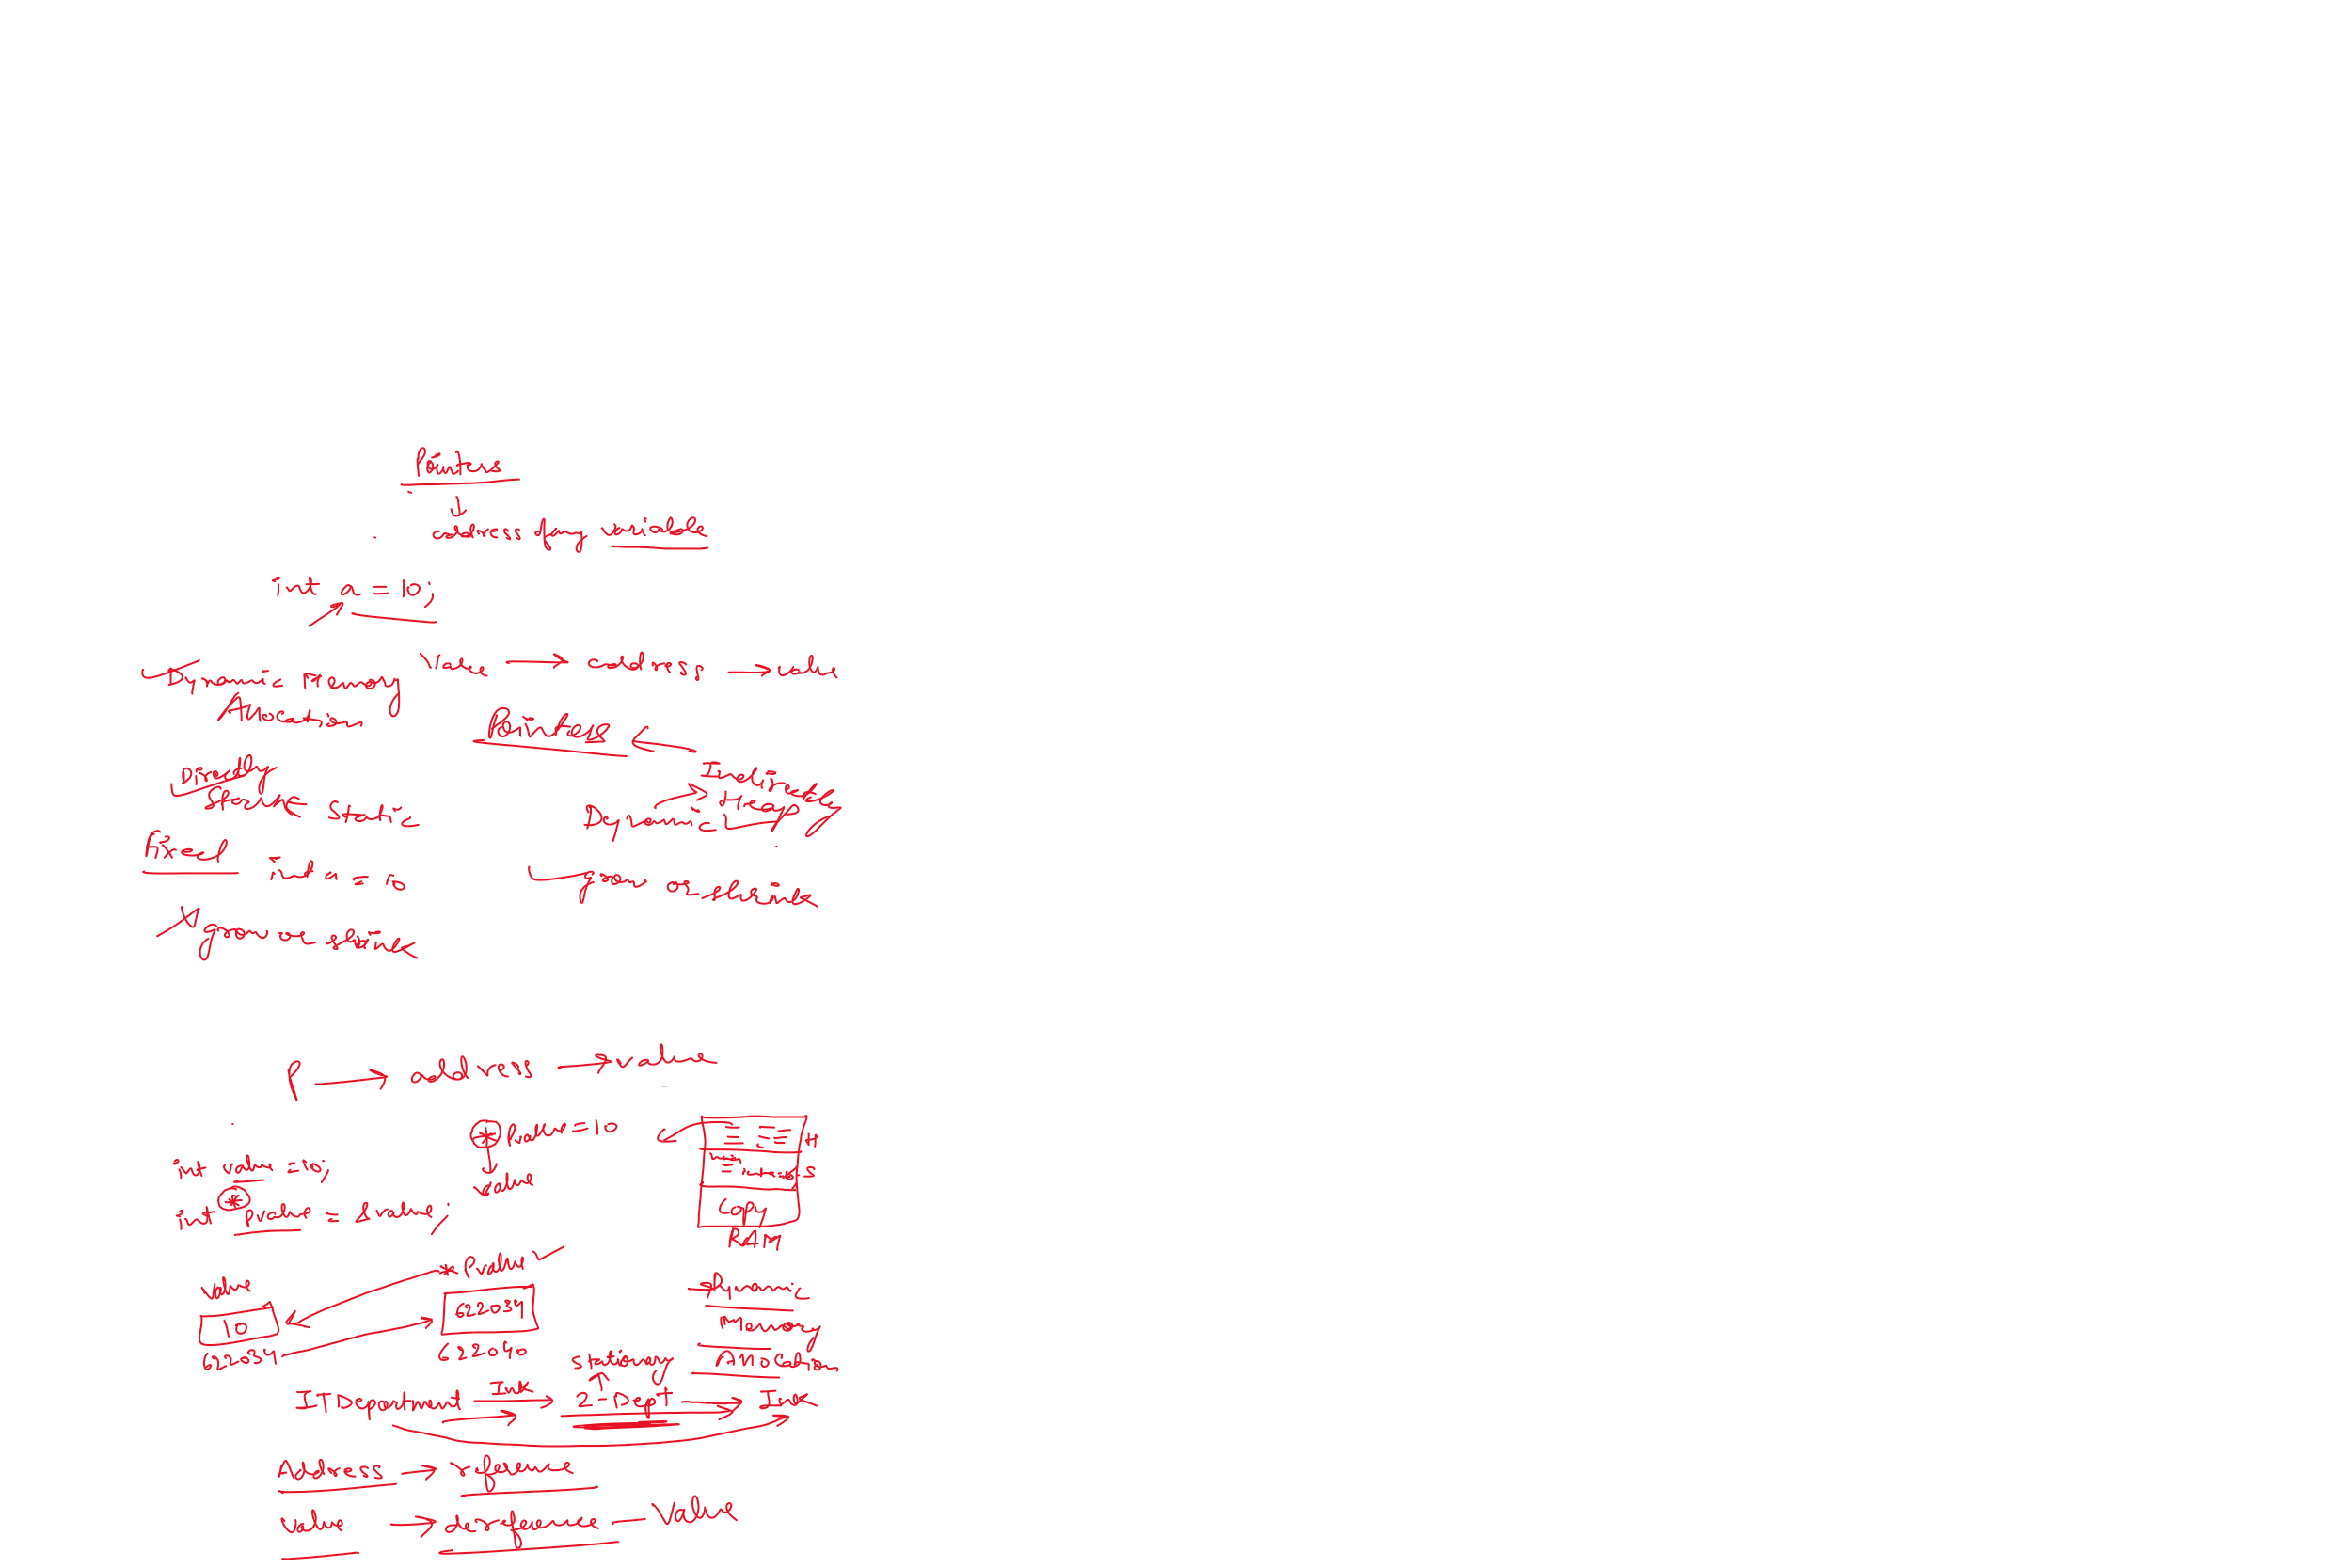 Pointers
address of any variable
int a = 10;
Value → address → value
Dynamic Memory
Allocation
Pointers
Directly
Stack
Static
Indirectly
Heap
Dynamic
Fixed
int a = 10
grow or shrink
grow or shrink
P → address → value
* Pvalue = 10
value
int value = 10;
int * pvalue = &value;
H
main
S
Copy
RAM
value
10
622034
* Pvalue
622034
622040
Dynamic
Memory
Allocation
stationary
IT Department → Ink → 2-Dept → Ink
Address → reference
Value → dereference — Value